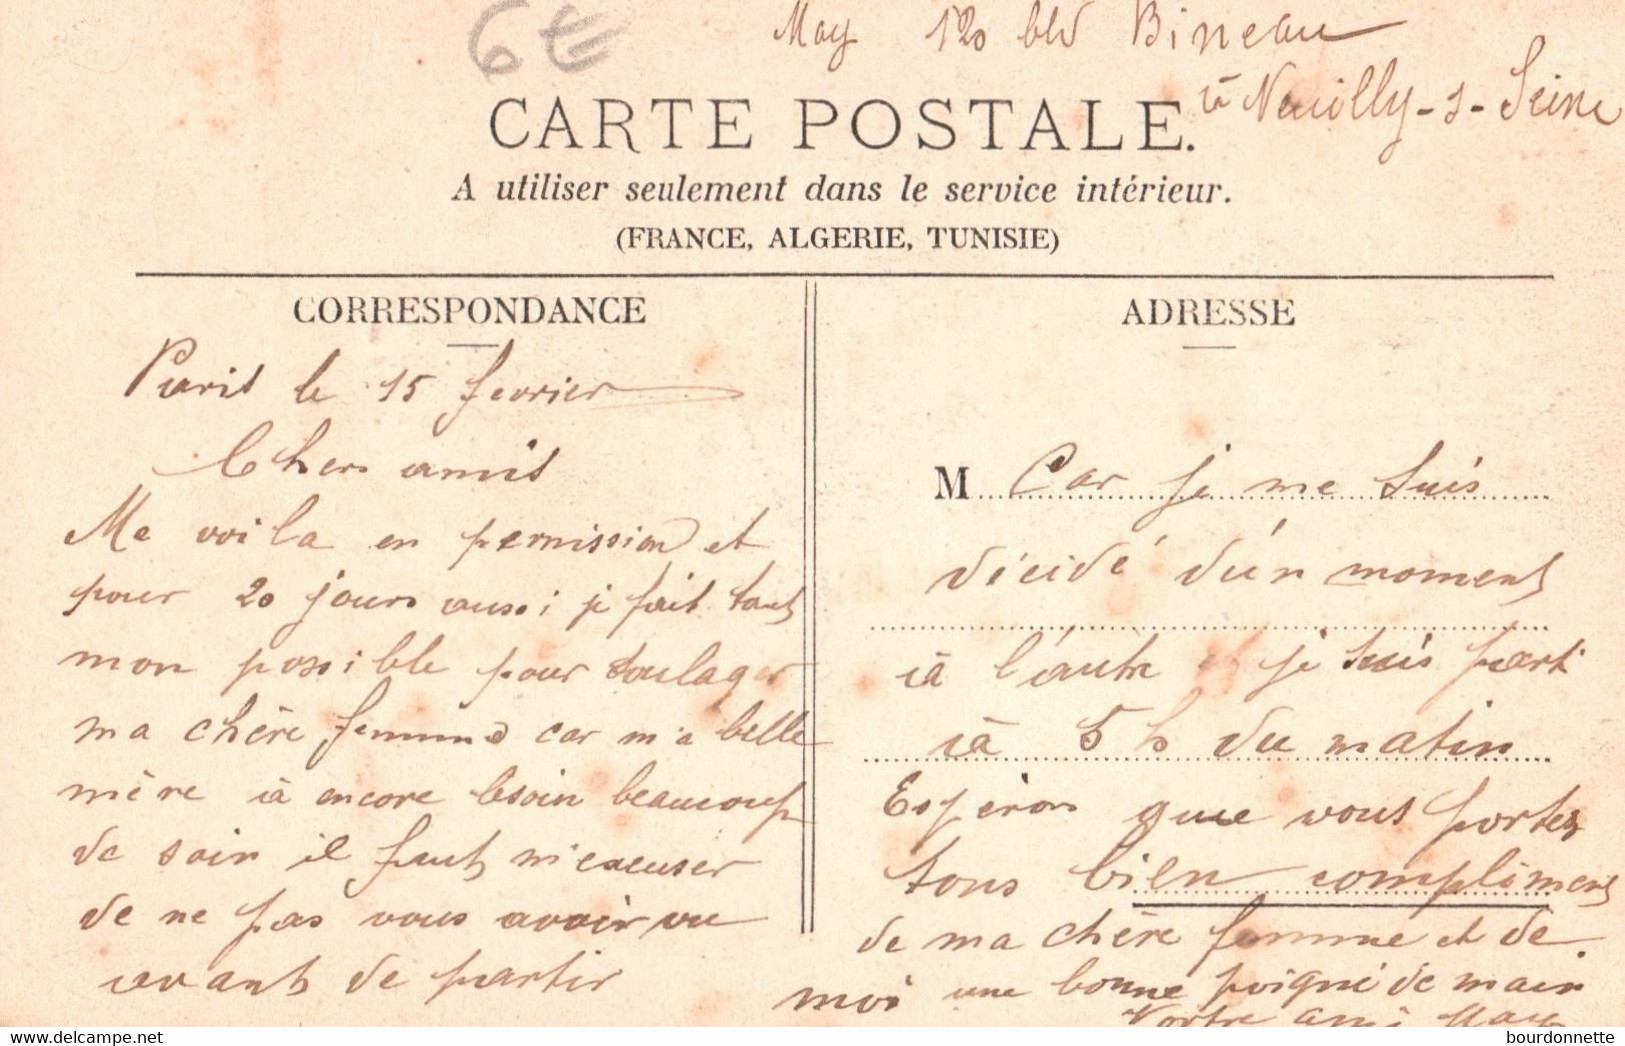 6€
May 120 bld Bineau
à Neuilly-s-Seine
CARTE POSTALE.
A utiliser seulement dans le service intérieur.
(FRANCE, ALGERIE, TUNISIE)
CORRESPONDANCE
Paris le 15 fevrier
Chers amis
Me voila en permission et
pour 20 jours aussi je fait tout
mon possible pour soulager
ma chère femme car m'a belle
mère à encore besoin beaucoup
de soin il faut m'excuser
de ne pas vous avoir vu
avant de partir
ADRESSE
M Car je me suis
décidé d'un moment
à l'autre et je suis parti
à 5 h du matin
Espérons que vous portez
tous bien compliment
de ma chère femme et de
moi une bonne poigné de main
Vortre ami May
bourdonnette